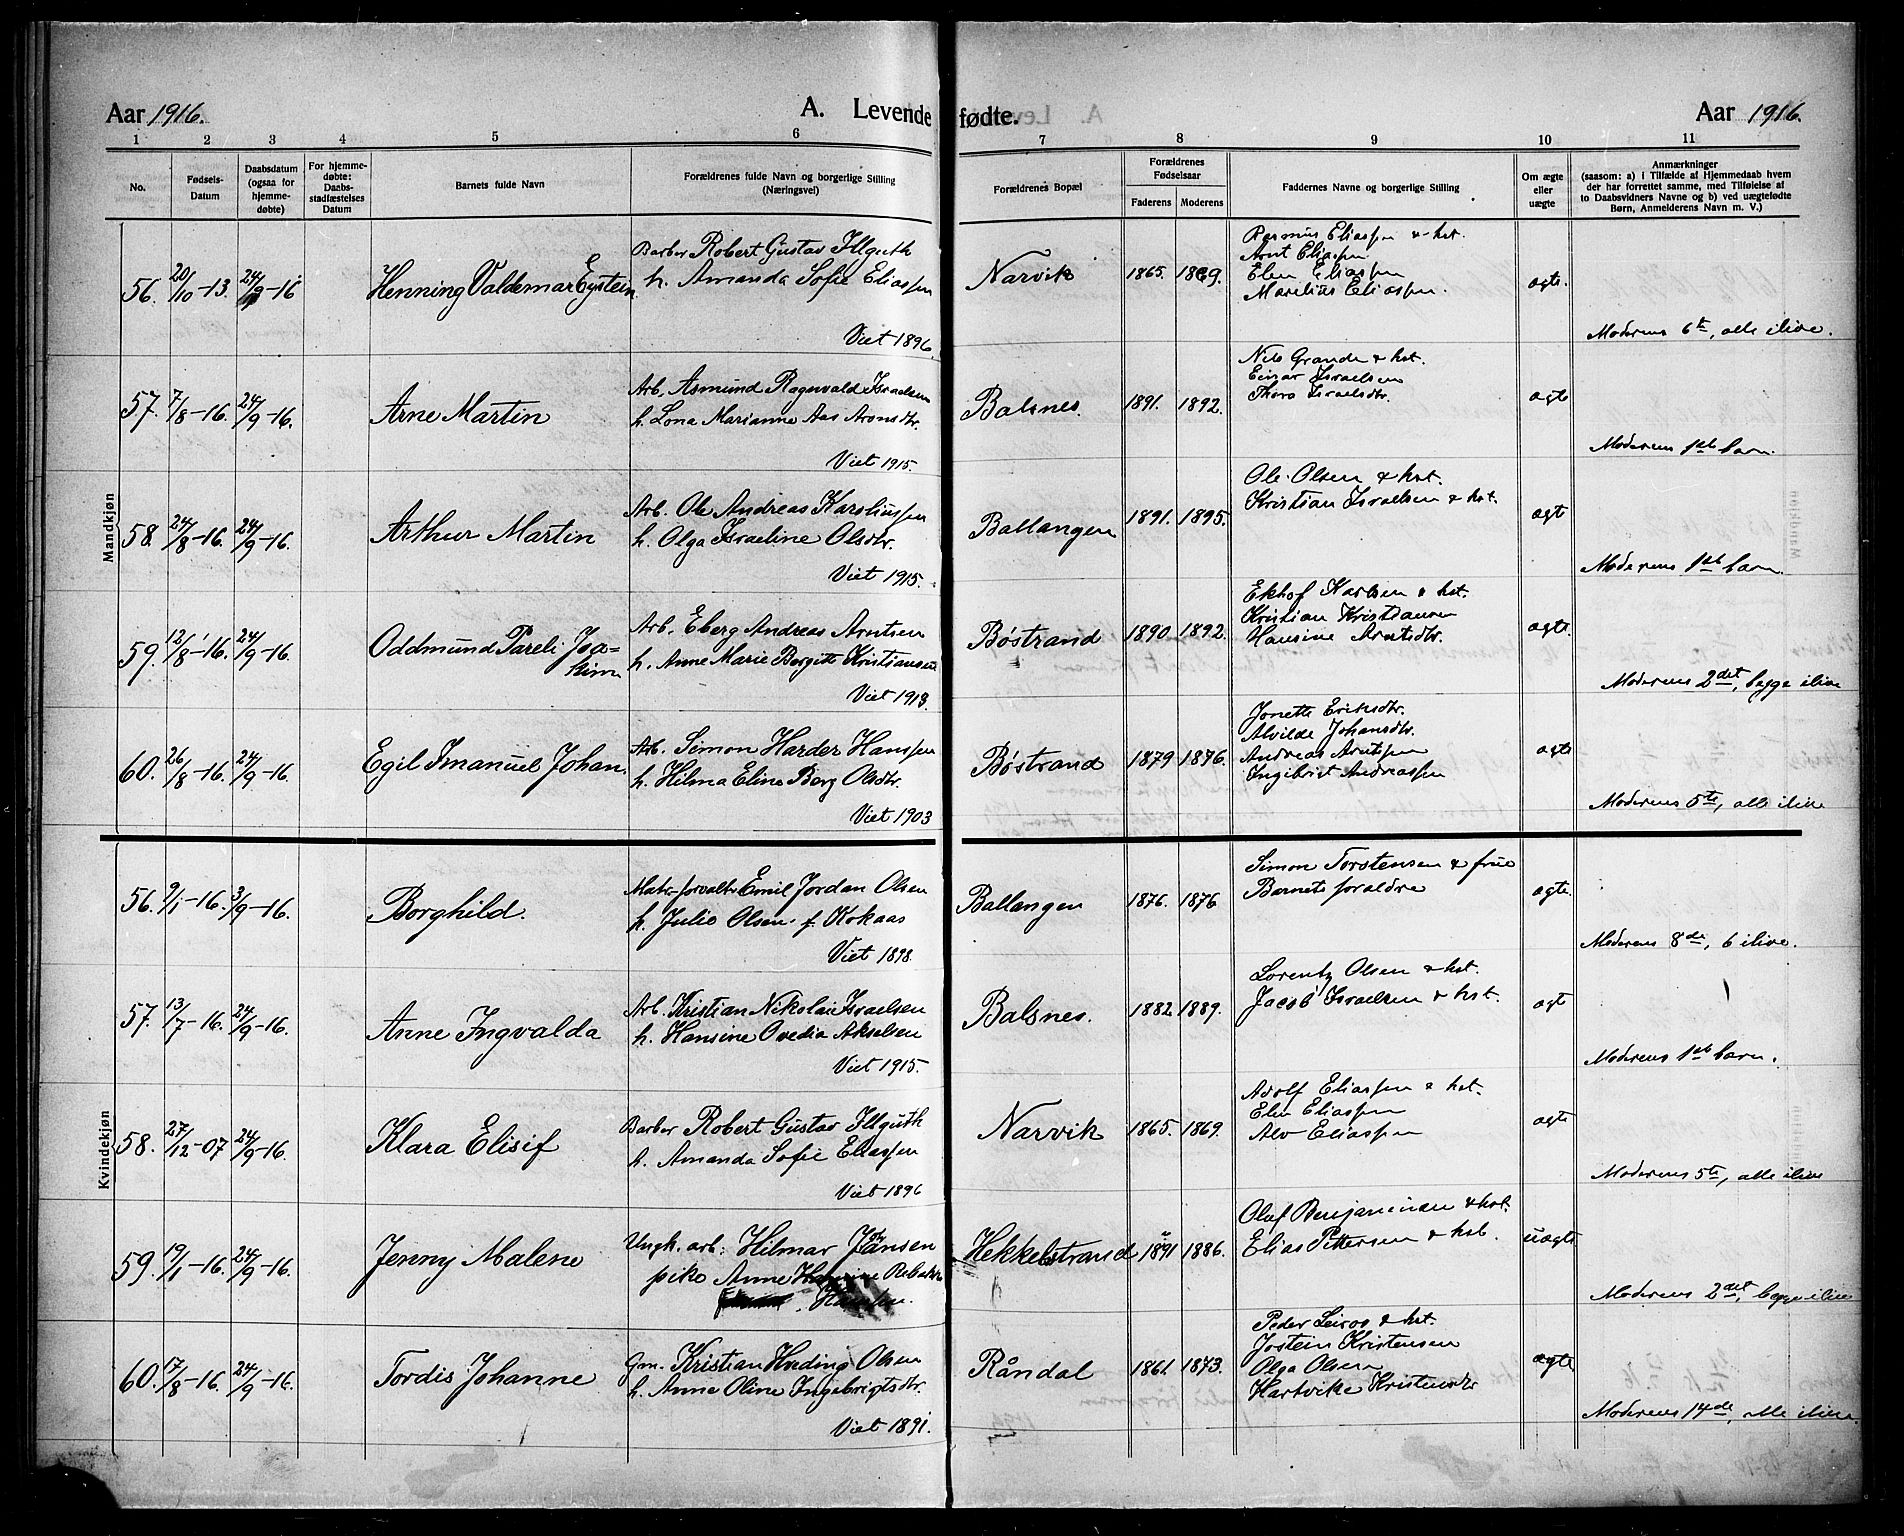 Aar 1916.
A. Levende
fødte.
Aar 1916.
1 2 3 4 5 6 7 8 9 10 11
No.
Fødsels-
Datum
Daabsdatum
(ogsaa for
hjemme-
døbte)
For hjemme-
døbte:
Daabs-
stadfæstelses
Datum
Barnets fulde Navn
Forældrenes fulde Navn og borgerlige Stilling
(Næringsvei)
Forældrenes Bopæl
Forældrenes
Fødselsaar
Faderens Moderens
Faddernes Navne og borgerlige Stilling
Om ægte
eller
uægte
Anmærkninger
(saasom: a) i Tilfælde af Hjemmedaab hvem
der har forrettet samme, med Tilføielse af
to Daabsvidners Navne og b) ved uægtefødte
Børn, Anmelderens Navn m. V.)
Mandkjøn
56. 20/10-13. 24/9-16 Henning Valdemar Eystein.
Barber Robert Gustav Illguth
h. Amanda Sofie Eliassen
Viet 1896.
Narvik 1865. 1869.
Rasmus Eliassen & hst.
Arnt Eliassen
Elen Eliassen
Marelius Eliassen.
ægte.
Moderens 6te, alle ilive.
57. 7/8-16. 24/9-16. Arne Martin
Arb. Asmund Ragnvald Israelsen
h. Lona Marianne Aas Aronsdtr.
Viet 1915.
Balsnes. 1891. 1892.
Nils Grande & hst.
Einar Israelsen
Thora Israelsdtr.
ægte
Moderens 1ste barn.
58. 24/8-16. 24/9-16. Arthur Martin
Arb. Ole Andreas Karoliussen
h. Olga Israeline Olsdtr.
Viet 1915.
Ballangen 1891. 1895.
Ole Olsen & hst.
Kristian Israelsen & hst.
ægte
Moderens 1ste barn.
59. 12/8-16. 24/9-16. Oddmund Pareli Joa-
kim
Arb. Eberg Andreas Arntsen
h. Anne Marie Bergitte Kristiansen
Viet 1913.
Bøstrand 1890. 1892.
Ekhof Karlsen & hst.
Kristian Kristiansen
Hansine Arntsdtr.
ægte.
Moderens 2det, begge ilive
60. 26/8-16. 24/9-16. Egil Imanuel Johan.
Arb. Simon Harder Hanssen
h. Hilma Eline Berg Olsdtr.
Viet 1903
Bøstrand 1879 1876.
Jonette Eriksdtr.
Alvilde Johansdtr.
Andreas Arntssen
Ingebrigt Andreassen
ægte
Moderens 5te, alle ilive
Kvindekjøn
56. 9/1-16. 3/9-16. Borghild.
Matr.forvalter Emil Jordan Olsen
h. Julie Olsen f. Kokaas
Viet 1898.
Ballangen 1876. 1876
Simon Torstensen & frue
Barnets foraldre
ægte.
Moderens 8de, 6 ilive.
57. 13/7-16. 24/9-16. Anne Ingvalda
Arb. Kristian Nikolai Israelsen
h. Hansine Ovedia Akselsen
Viet 1915.
Balsnes. 1882. 1889.
Lorentz Olsen & hst.
Jacob Israelsen & hst.
ægte
Moderens 1ste barn.
58. 27/12-07 24/9-16. Klara Elisif
Barber Robert Gustav Illguth
h. Amanda Sofie Eliassen
Viet 1896
Narvik 1865. 1869.
Adolf Eliassen & hst.
Elen Eliassen
Alv Eliassen
ægte
Moderens 5te, alle ilive
59. 19/1-16. 24/9-16. Jenny Malene
Ungk. arb: Hilmar Jansen
pike Anne
Hekkelstrand 1891 1886.
Olaf Benjaminsen & hst.
Elias Pettersen & hst.
uægte.
Moderens 2det, begge ilive
60. 17/8-16. 24/9-16. Tordis Johanne
Gm. Kristian Hveding Olsen
h. Anne Oline Ingebrigtsdtr.
Viet 1891.
Råndal 1861. 1873.
Peder Leiros & hst.
Jostein Kristensen
Olga Olsen
Hartvikke Kristensdtr
ægte.
Moderens 14de, alle ilive.